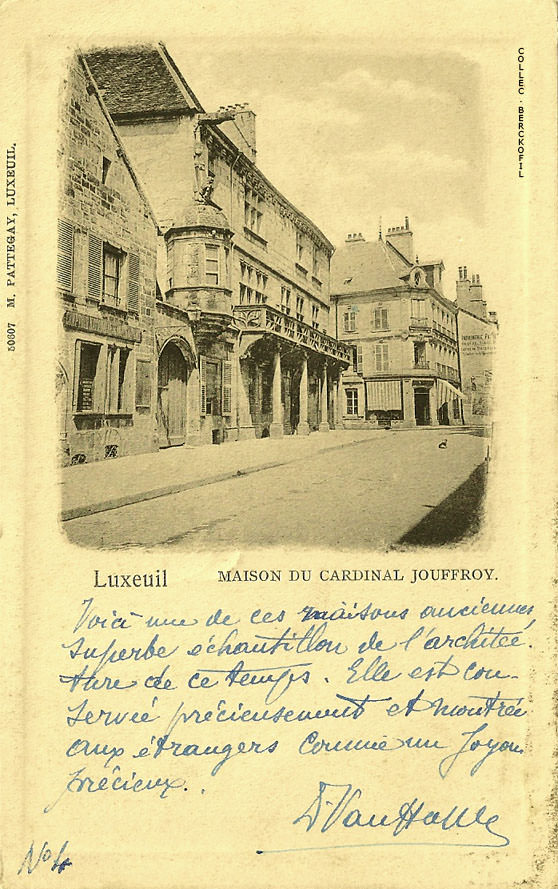 COLLEC · BERCKOFIL
50607 M. PATTEGAY, LUXEUIL.
Luxeuil MAISON DU CARDINAL JOUFFROY.
Voici une de ces maisons anciennes,
superbe échantillon de l'architec-
ture de ce temps. Elle est con-
servée précieusement et montrée
aux étrangers comme un joyau
précieux.
No 4